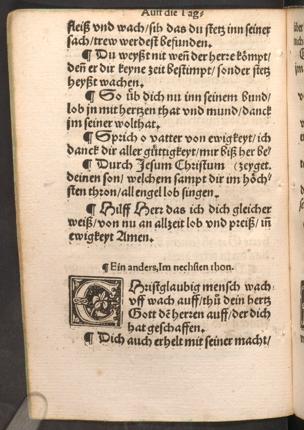 Auff die Tag-
fleiß vnd wach/sih das du stetz inn seiner
sach/trew werdest befunden.
¶ Du weyßt nit weñ der herꝛe kõmpt
deñ er dir keyne zeit bestimpt/sonder stetz
heyßt wachen.
¶ So üb dich nu inn seinem bund/
lob jn mit hertzen that vnd mund/danck
jm seiner wolthat.
¶ Sprich o vatter von ewigkeyt/ich
danck dir aller gůttigkeyt/mir biß her be-
¶ Durch Jesum Christum (zeyget.
deinen son/welchem sampt dir im höch-
sten thron/all engel lob singen.
¶ Hilff Herr das ich dich gleicher
weiß/von nu an allzeit lob vnd preiß/iñ
ewigkeyt Amen.
¶ Ein anders, Im nechsten thon.
CHristglaubig mensch wach
vff wach auff/thů dein hertz
Gott dẽ herren auff/der dich
hat geschaffen.
¶ Dich auch erhelt mit seiner macht/